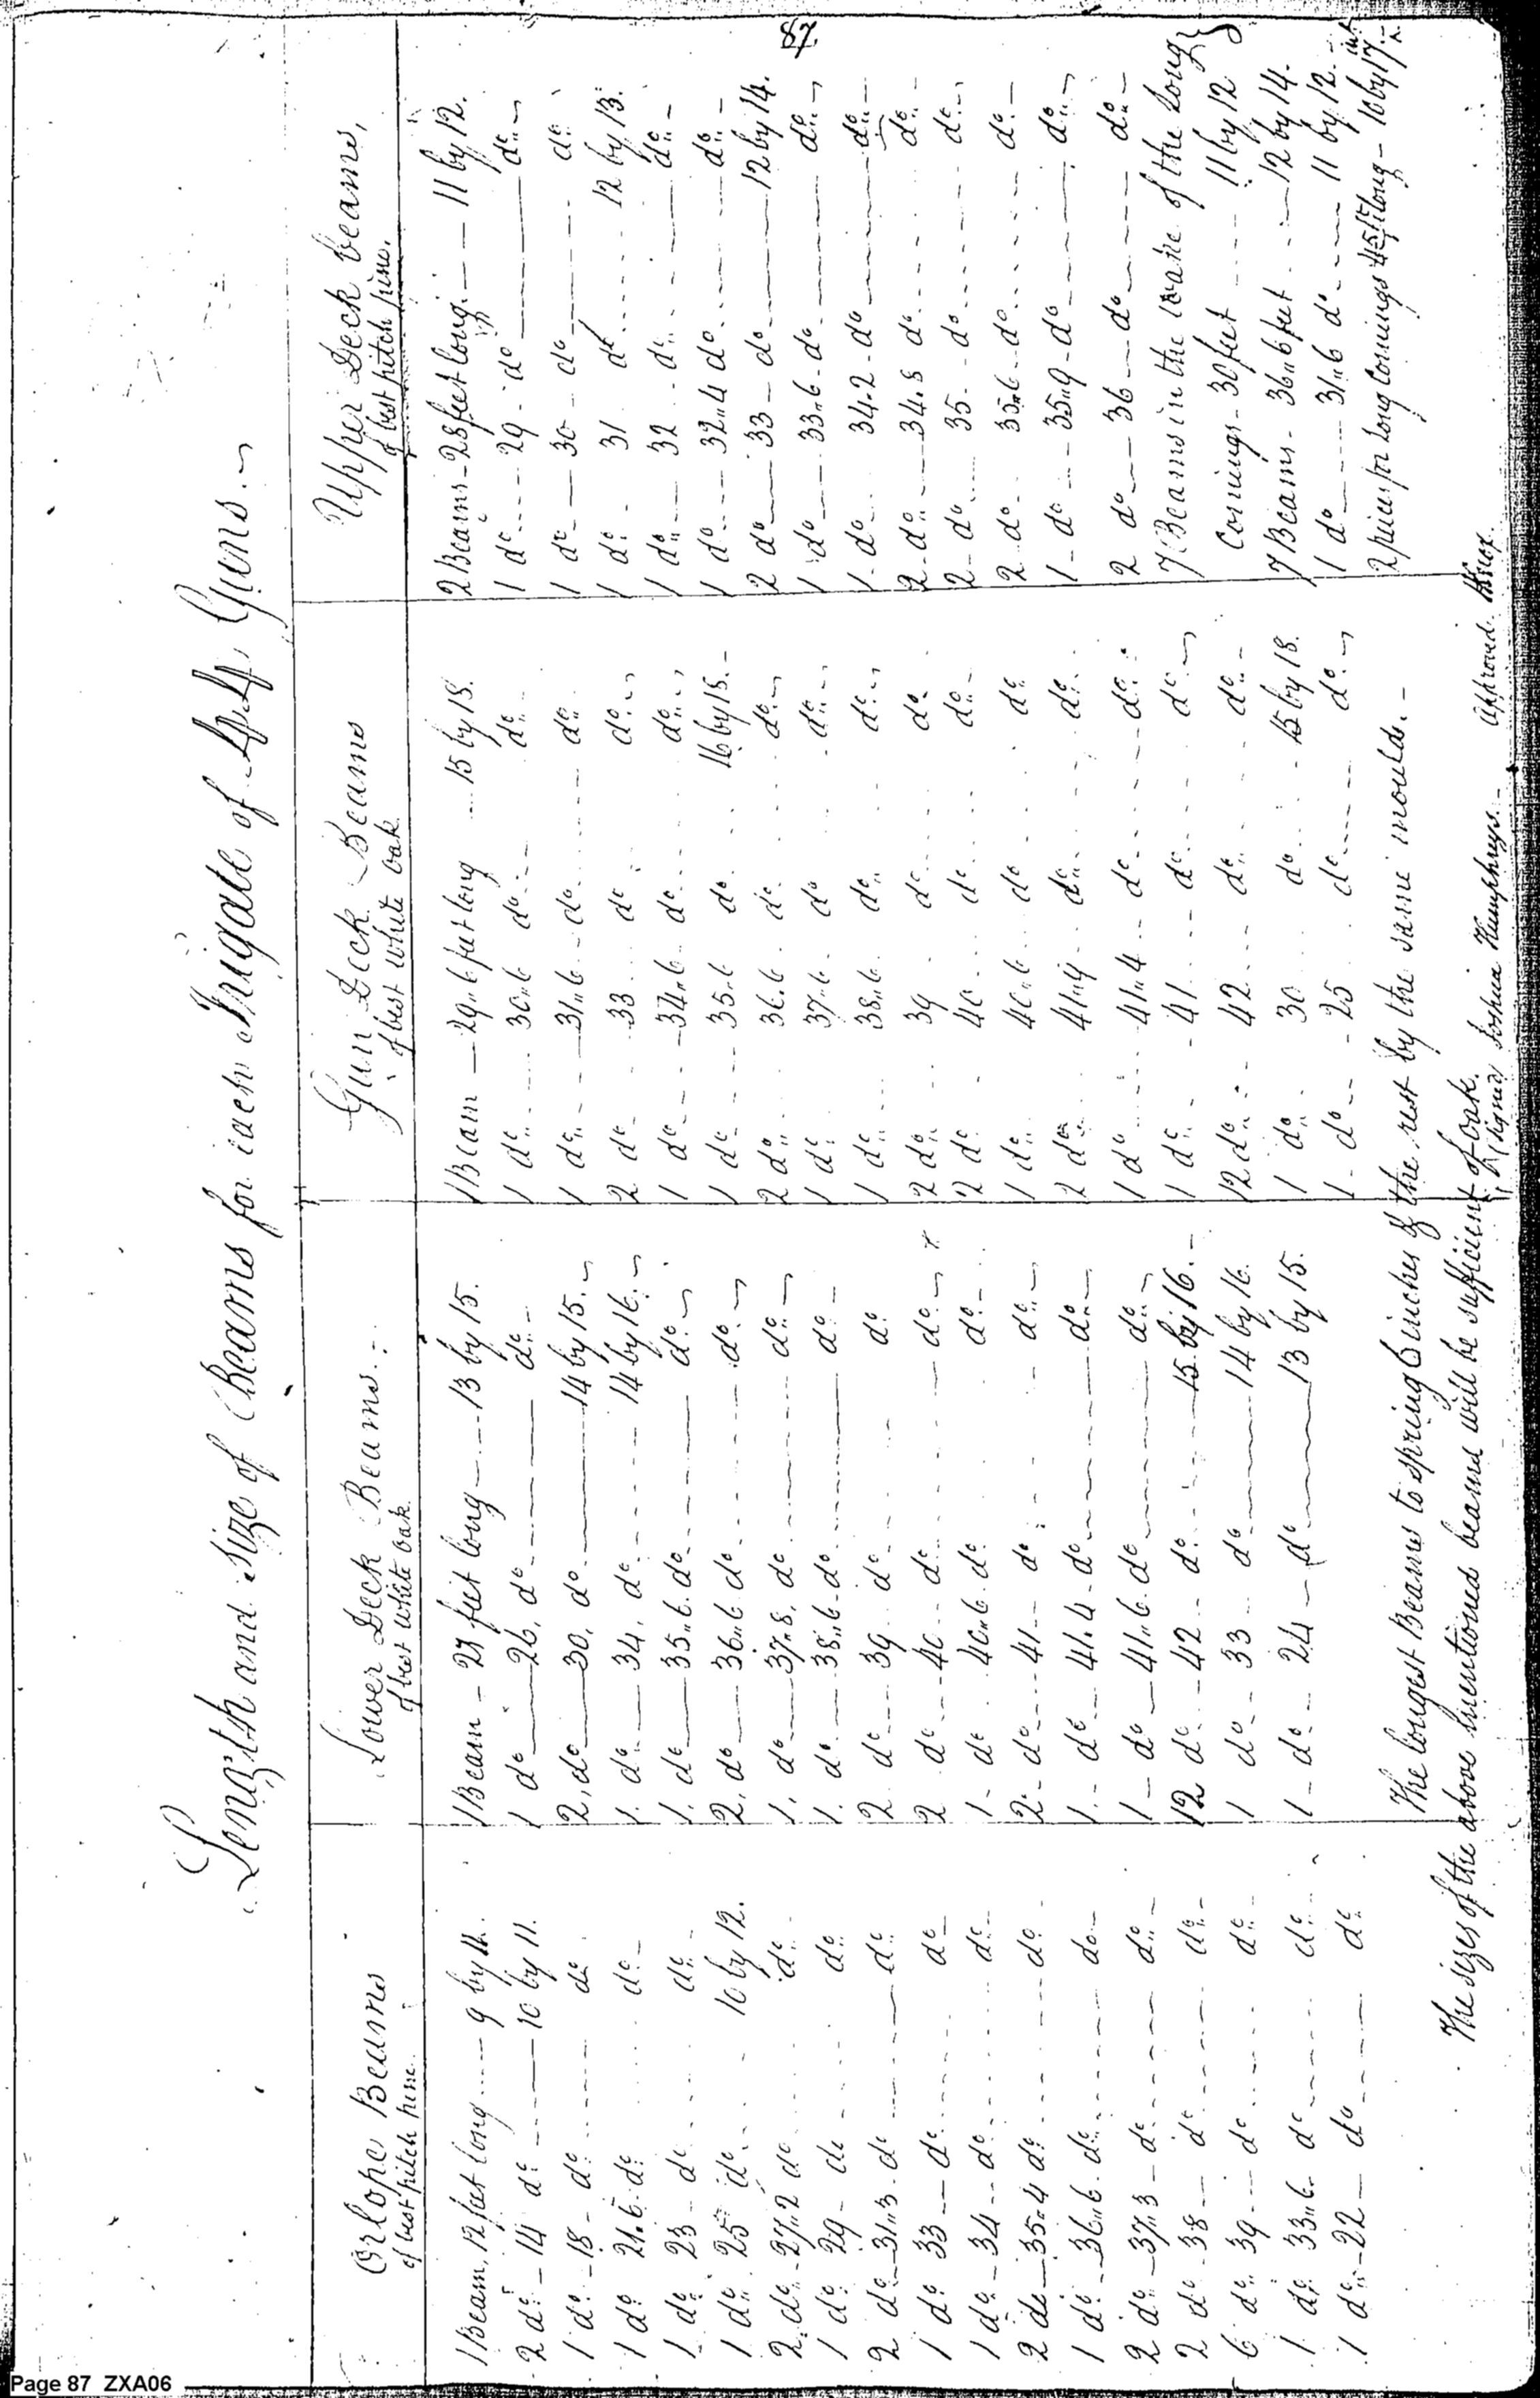 87
Length and Size of Beams for each Frigate of 44 Guns.
Orlope Beams
of best pitch pine
1 Beam, 12 feet long 9 by 11.
2 do 14 do 10 by 11.
1 do 18 do do
1 do 21.6 do do
1 do 23 do do
1 do 25 do 10 by 12.
2 do 27.2 do do
1 do 29 do do
2 do 31.3 do do
1 do 33 do do
1 do 34 do do
2 do 35.4 do do
1 do 36.6 do do
2 do 37.3 do do
2 do 38 do do
6 do 39 do do
1 do 33.6 do do
1 do 22 do do
Lower Deck Beams.
of best white oak.
1 Beam feet long 13 by 15.
1 do 26. do do
2, do 30, do 14 by 15.
1. do 34, do 14 by 16.
1. do 35.6. do do
2, do 36.6 do do
1, do 37.8, do do
1. do 38.6 do do
2 do 39 do do
2 do 40 do do
1 do 40.6 do do
2 do 41 do do
1 do 41.4 do do
1 do 41.6 do do
12 do 42 do 15 by 16.
1 do 33 do 14 by 16.
1 do 24 do 13 by 15.
Gun Deck Beams
of best white oak
1 Beam 29.6 feet long 15 by 18.
1 do 30.6 do do
1 do 31.6 do do
2 do 33 do do
1 do 34.6 do do
1 do 35.6 do 16 by 18.
2 do 36.6 do do
1 do 37.6 do do
1 do 38.6 do do
2 do 39 do do
2 do 40 do do
1 do 40.6 do do
2 do do do
1 do 41.4 do do
1 do 41 do do
12 do 42 do do
1 do 30 do 15 by 18.
1 do 25 do do
Upper Deck beams,
of best pitch pine.
2 Beams 28 feet long 11 by 12.
1 do 29 do do
1 do 30 do do
1 do 31 do 12 by 13.
1 do 32 do do
1 do 32.4 do do
2 do 33 do 12 by 14.
1 do 33.6 do do
1 do 34.2 do do
2 do 34.8 do do
2 do 35 do do
2 do 35.6 do do
1 do 35.9 do do
2 do 36 do do
7 Beams in the wake of the long
Comings 30 feet 11 by 12
7 Beams 36.6 feet 12 by 14.
1 do 31.6 do 11 by 12.
2 pieces for long Comings 45 ft long 10 by 17 in
The longest Beams to spring 6 inches & the rest by the same moulds.
The sizes of the above mentioned beams will be sufficient of oak.
(signed) Joshua Humphreys. Approved. Knox.
Page 87 ZXA06